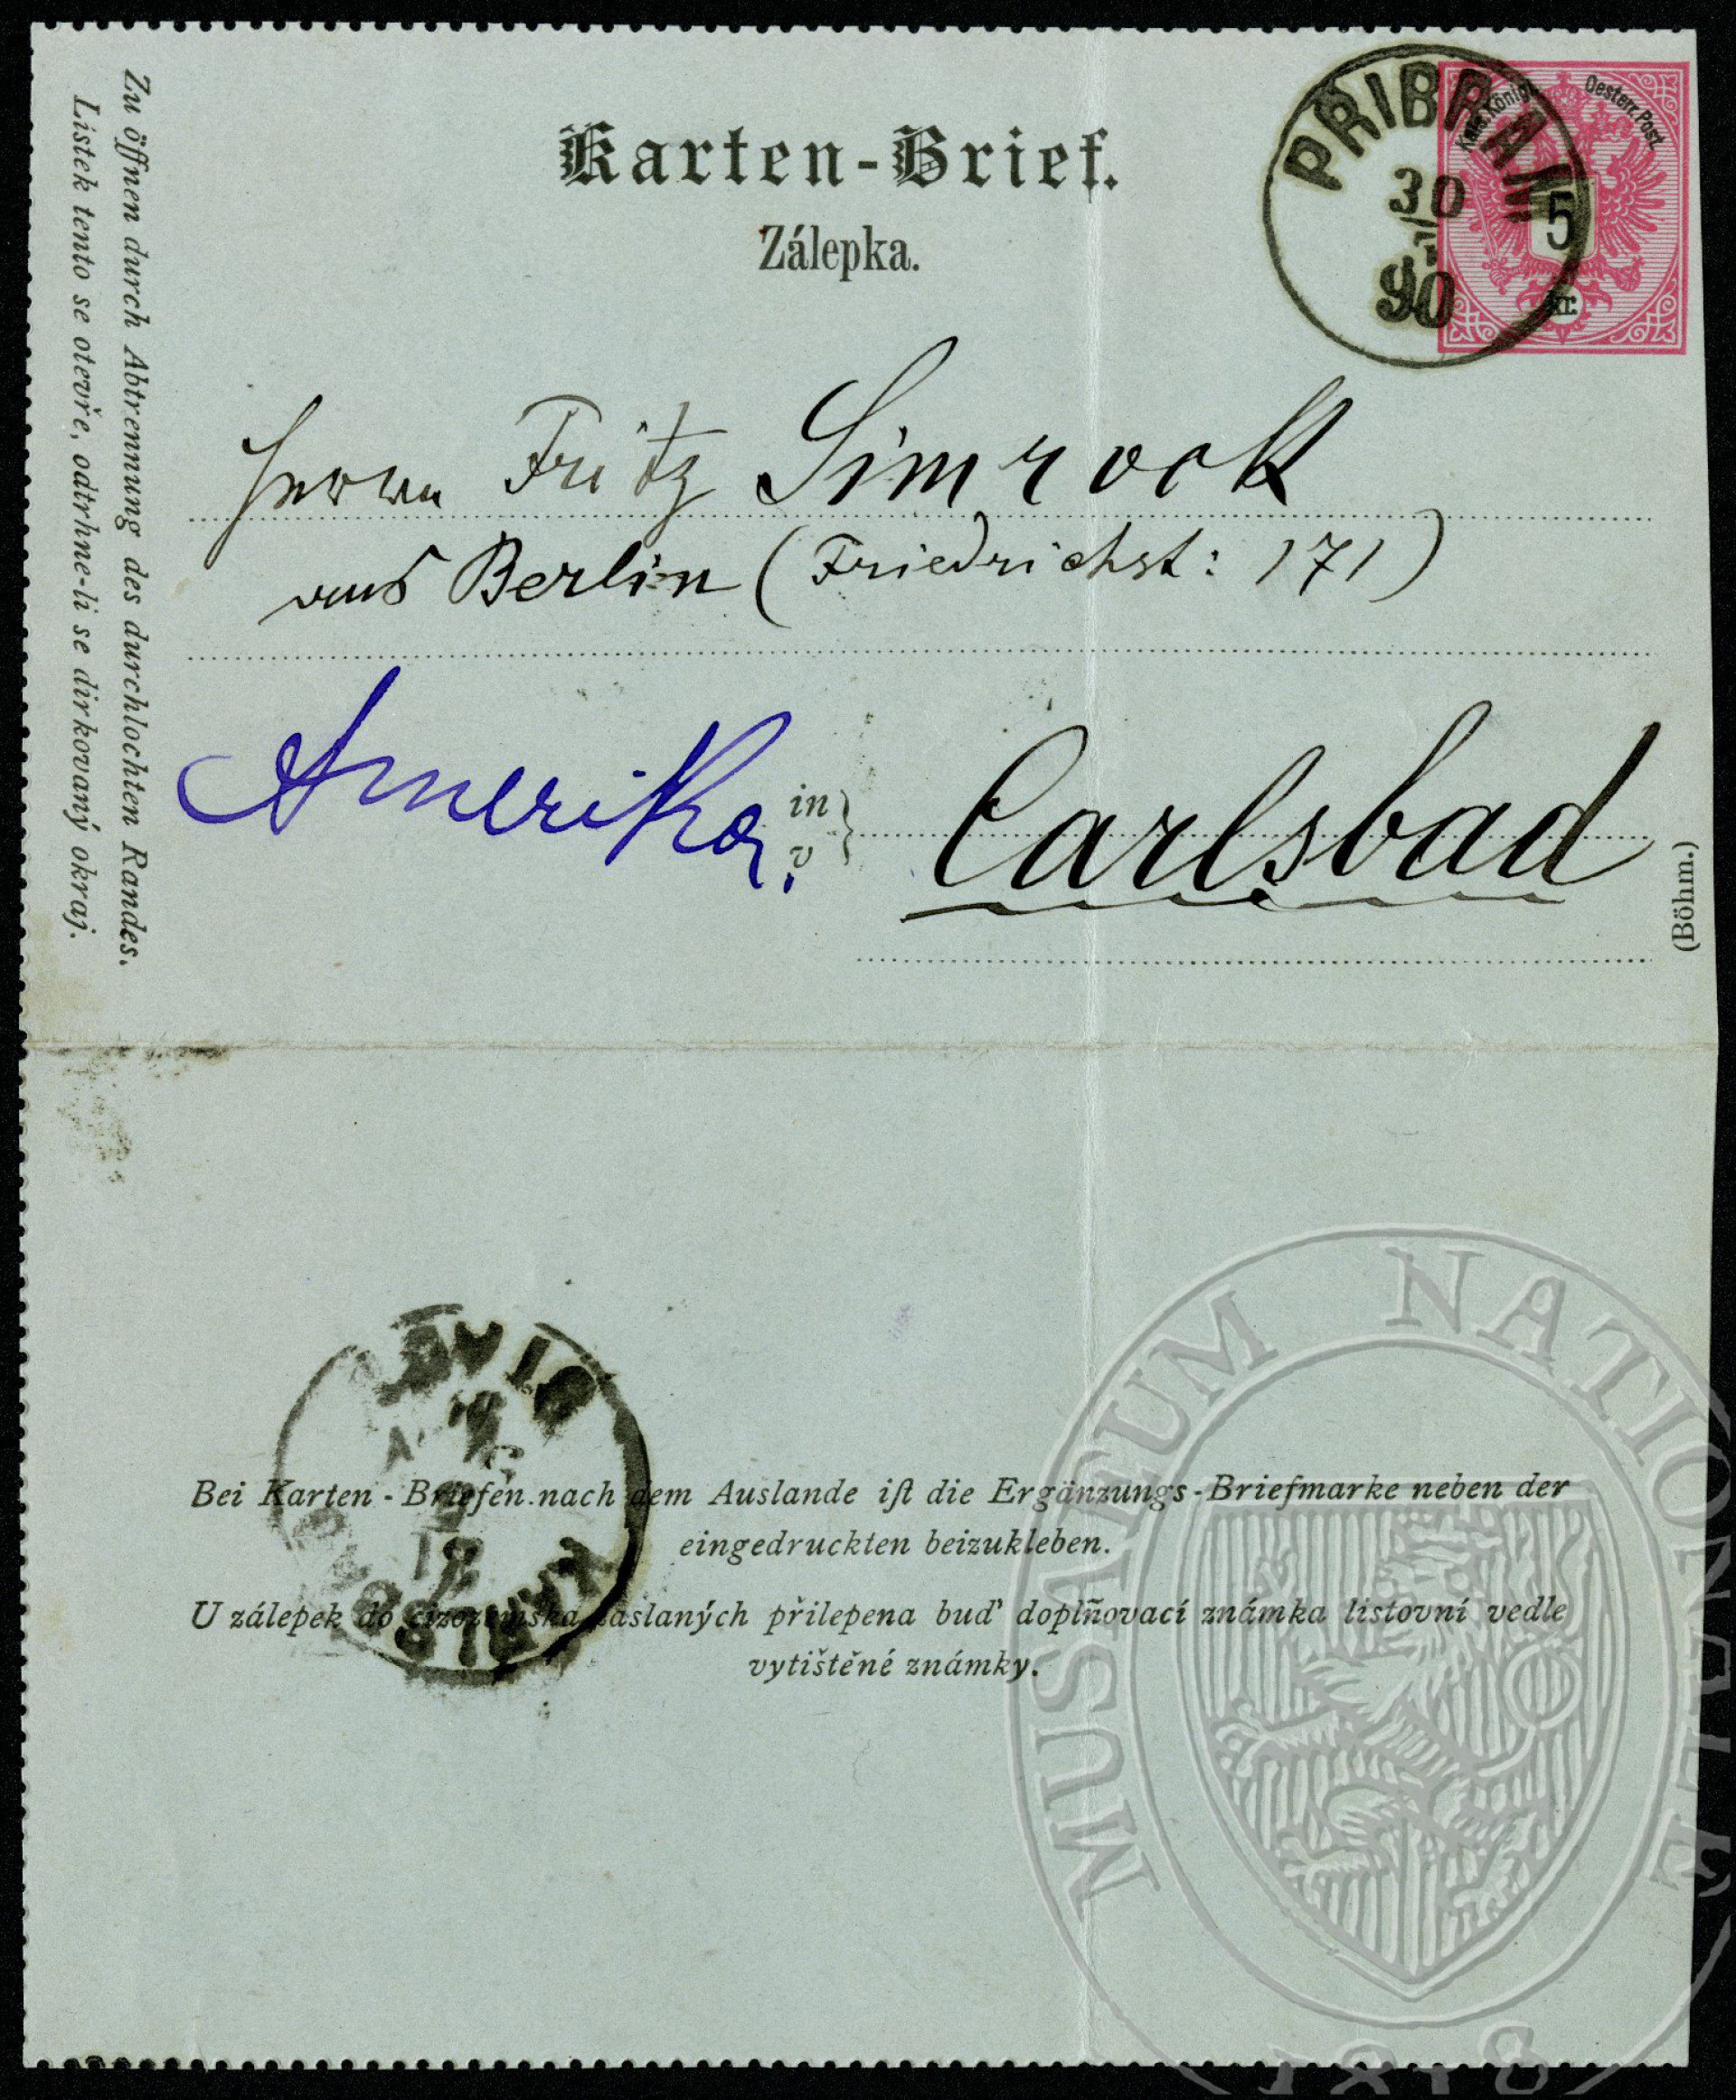 Karten-Brief.
Zálepka.
PŘIBRAM
30
90
Kais. Königl. Oesterr. Post.
5
kr.
Zu öffnen durch Abtrennung des durchlochten Randes.
Lístek tento se otevře, odtrhne-li se dirkovaný okraj.
Herrn Fritz Simrock
aus Berlin (Friedrichst: 171)
Amerika.
in
v
Carlsbad
(Böhm.)
Bei Karten-Briefen nach dem Auslande ist die Ergänzungs-Briefmarke neben der
eingedruckten beizukleben.
U zálepek do cizozemska zaslaných přilepena buď doplňovací známka listovní vedle
vytištěné známky.
MUSAEUM NATIONALE
1818